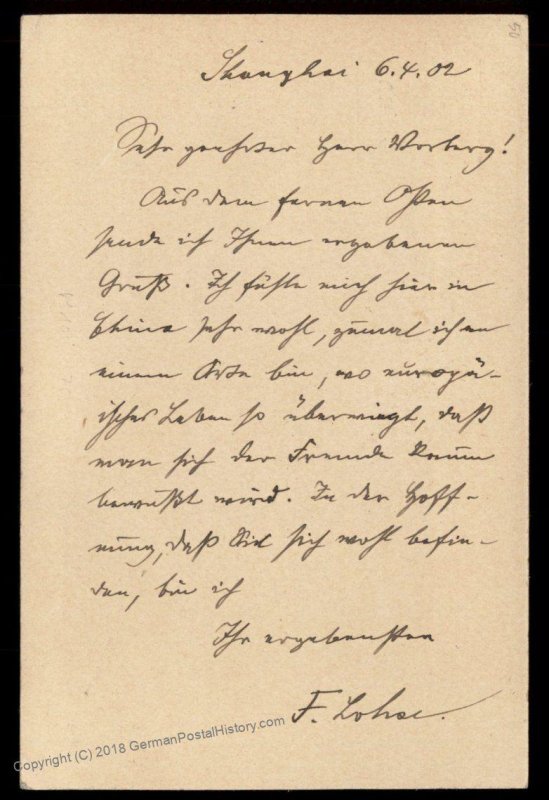 50
Shanghai 6.4.02
Sehr geehrter Herr Vorberg!
Aus dem fernen Osten
sende ich Ihnen ergebenen
Gruß. Ich fühle mich hier in
China sehr wohl, zumal ich an
einem Orte bin, wo europä-
isches Leben so überwiegt, daß
man sich der Fremde kaum
bewußt wird. In der Hoff-
nung, daß Sie sich wohl befin-
den, bin ich
Ihr ergebenster
F. Lohse.
Copyright (C) 2018 GermanPostalHistory.com